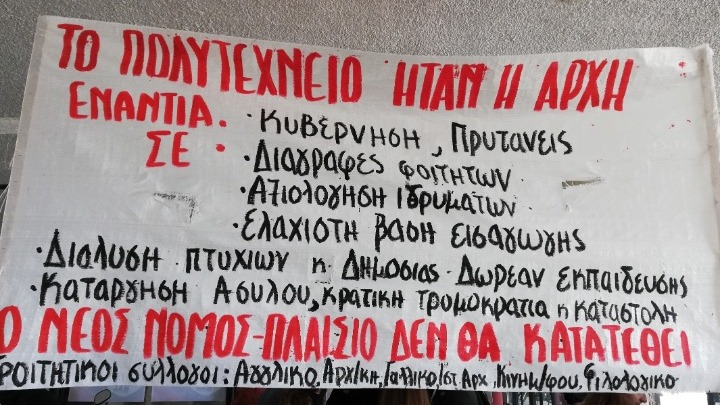 ΤΟ ΠΟΛΥΤΕΧΝΕΙΟ ΗΤΑΝ Η ΑΡΧΗ
ΕΝΑΝΤΙΑ
ΣΕ :
· Κυβέρνηση, Πρυτάνεις
· Διαγραφές φοιτητών
· Αξιολόγηση ιδρυμάτων
· Ελάχιστη βάση εισαγωγής
· Διάλυση πτυχίων κ Δημόσιας - Δωρεάν εκπαίδευσης
· Κατάργηση Ασύλου, κρατική τρομοκρατία κ καταστολή
Ο ΝΕΟΣ ΝΟΜΟΣ-ΠΛΑΙΣΙΟ ΔΕΝ ΘΑ ΚΑΤΑΤΕΘΕΙ
ΦΟΙΤΗΤΙΚΟΙ ΣΥΛΛΟΓΟΙ: Αγγλικό, Αρχ/κη, Γαλλικό, Ιστ. Αρχ, Κινημ/φου, Φιλολογικό